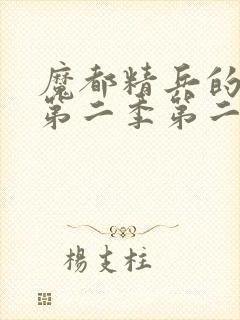 魔都精兵的
第二季第二
楊支柱